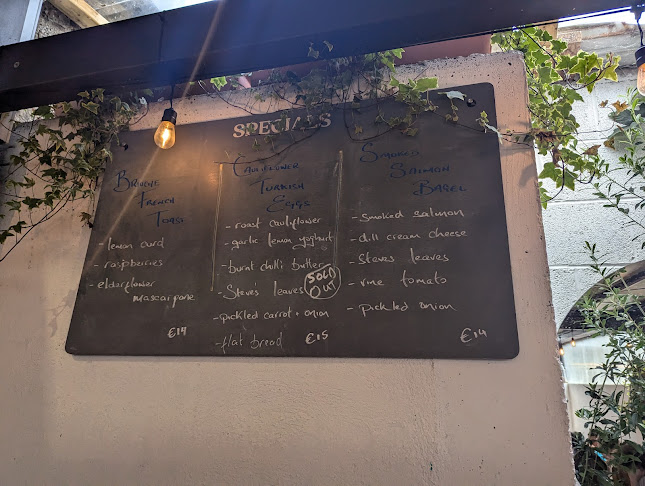 SPECIALS
BRIOCHE
FRENCH
TOAST
- lemon curd
- raspberries
- elderflower
mascarpone
€14
CAULIFLOWER
TURKISH
EGGS
- roast cauliflower
- garlic lemon yoghurt
- burnt chilli butter
- Steve's leaves
SOLD
OUT
- pickled carrot + onion
- flat bread €15
SMOKED
SALMON
BAGEL
- smoked salmon
- dill cream cheese
- Steves leaves
- vine tomato
- pickled onion
€14